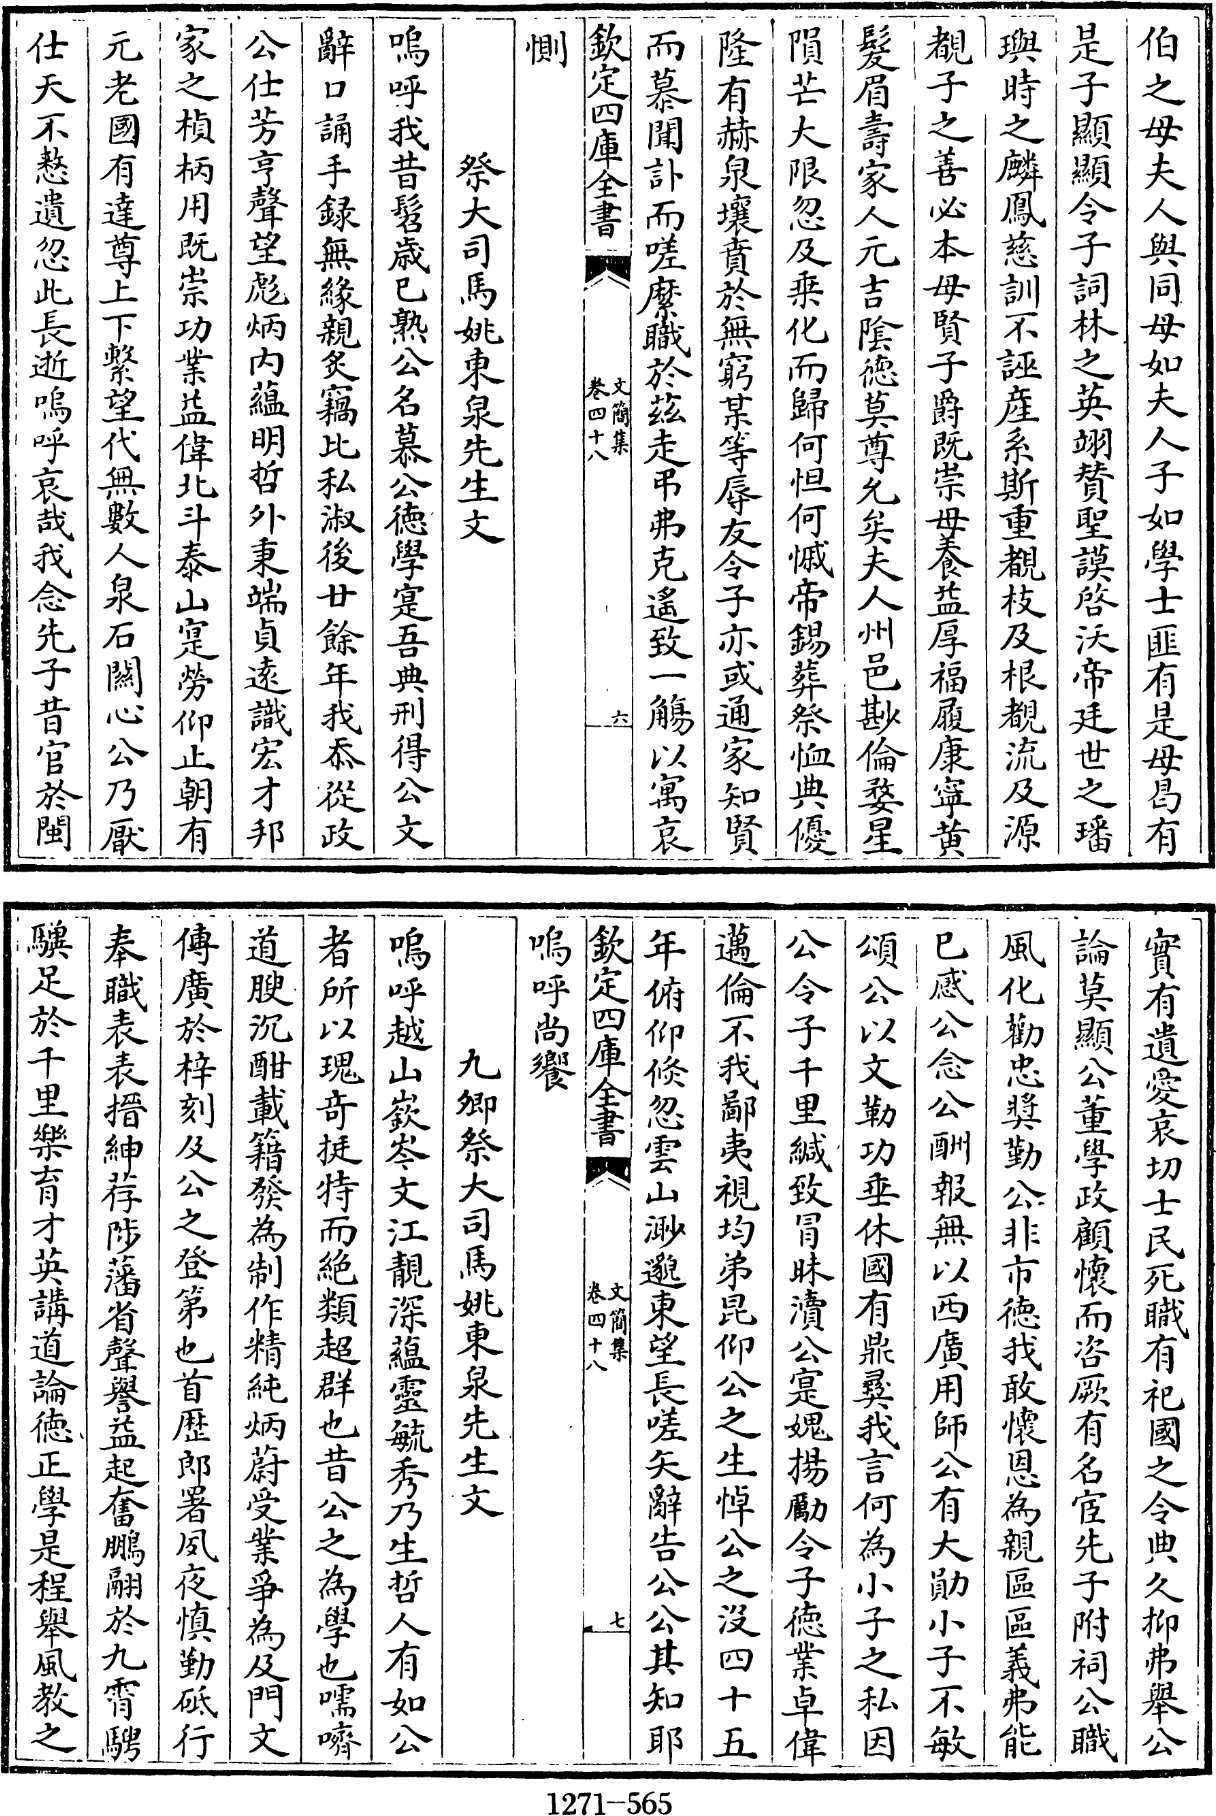 伯之母夫人與同母如夫人子如學士匪有是母曷有
是子顯顯令子詞林之英翊贊聖謨啓沃帝廷世之璠
璵時之麟鳳慈訓不誣産系斯重覩枝及根覩流及源
覩子之善必本母賢子爵既崇母養益厚福履康寧黄
髮眉壽家人元吉陰德莫尊允矣夫人州邑尠倫婺星
隕芒大限忽及乗化而歸何怛何慽帝錫葬祭恤典優
隆有赫泉壤賁於無窮某等辱友令子亦或通家知賢
而慕聞訃而嗟縻職於兹走弔弗克遙致一觴以寓哀
欽定四庫全書 文簡集 卷四十八 六
惻
祭大司馬姚東泉先生文
嗚呼我昔髫歳已熟公名慕公德學寔吾典刑得公文
辭口誦手録無緣親炙竊比私淑後廿餘年我忝從政
公仕芳亨聲望彪炳内蘊明哲外秉端貞遠識宏才邦
家之楨柄用既崇功業益偉北斗泰山寔勞仰止朝有
元老國有達尊上下繫望代無數人泉石關心公乃厭
仕天不憗遺忽此長逝嗚呼哀哉我念先子昔官於閩
實有遺愛哀切士民死職有祀國之令典久抑弗舉公
論莫顯公董學政顧懷而咨厥有名宦先子附祠公職
風化勸忠奬勤公非市德我敢懷恩為親區區義弗能
已感公念公酬報無以西廣用師公有大勛小子不敏
頌公以文勒功垂休國有鼎彛我言何為小子之私因
公令子千里緘致冒昧瀆公寔媿揚勵令子德業卓偉
邁倫不我鄙夷視均弟昆仰公之生悼公之沒四十五
年俯仰倏忽雲山渺邈東望長嗟矢辭告公公其知耶
欽定四庫全書 文簡集 卷四十八 七
嗚呼尚饗
九卿祭大司馬姚東泉先生文
嗚呼越山嶔岑文江靚深蘊靈毓秀乃生哲人有如公
者所以瑰奇挺特而絶類超群也昔公之為學也嚅嚌
道腴沉酣載籍發為制作精純炳蔚受業爭為及門文
傳廣於梓刻及公之登第也首歴郎署夙夜慎勤砥行
奉職表表搢紳荐陟藩省聲譽益起奮鵬翮於九霄騁
驥足於千里樂育才英講道論德正學是程舉風教之
1271—565